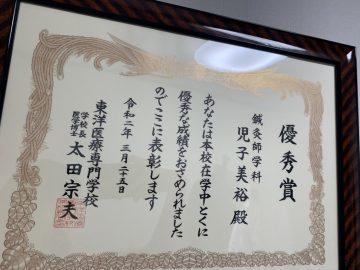 優秀賞
鍼灸師学科
児子美裕殿
あなたは本校在学中とくに
優秀な成績をおさめられました
のでここに表彰します
令和二年 三月二十五日
東洋医療専門学校
学校長
医学博士
太田宗夫